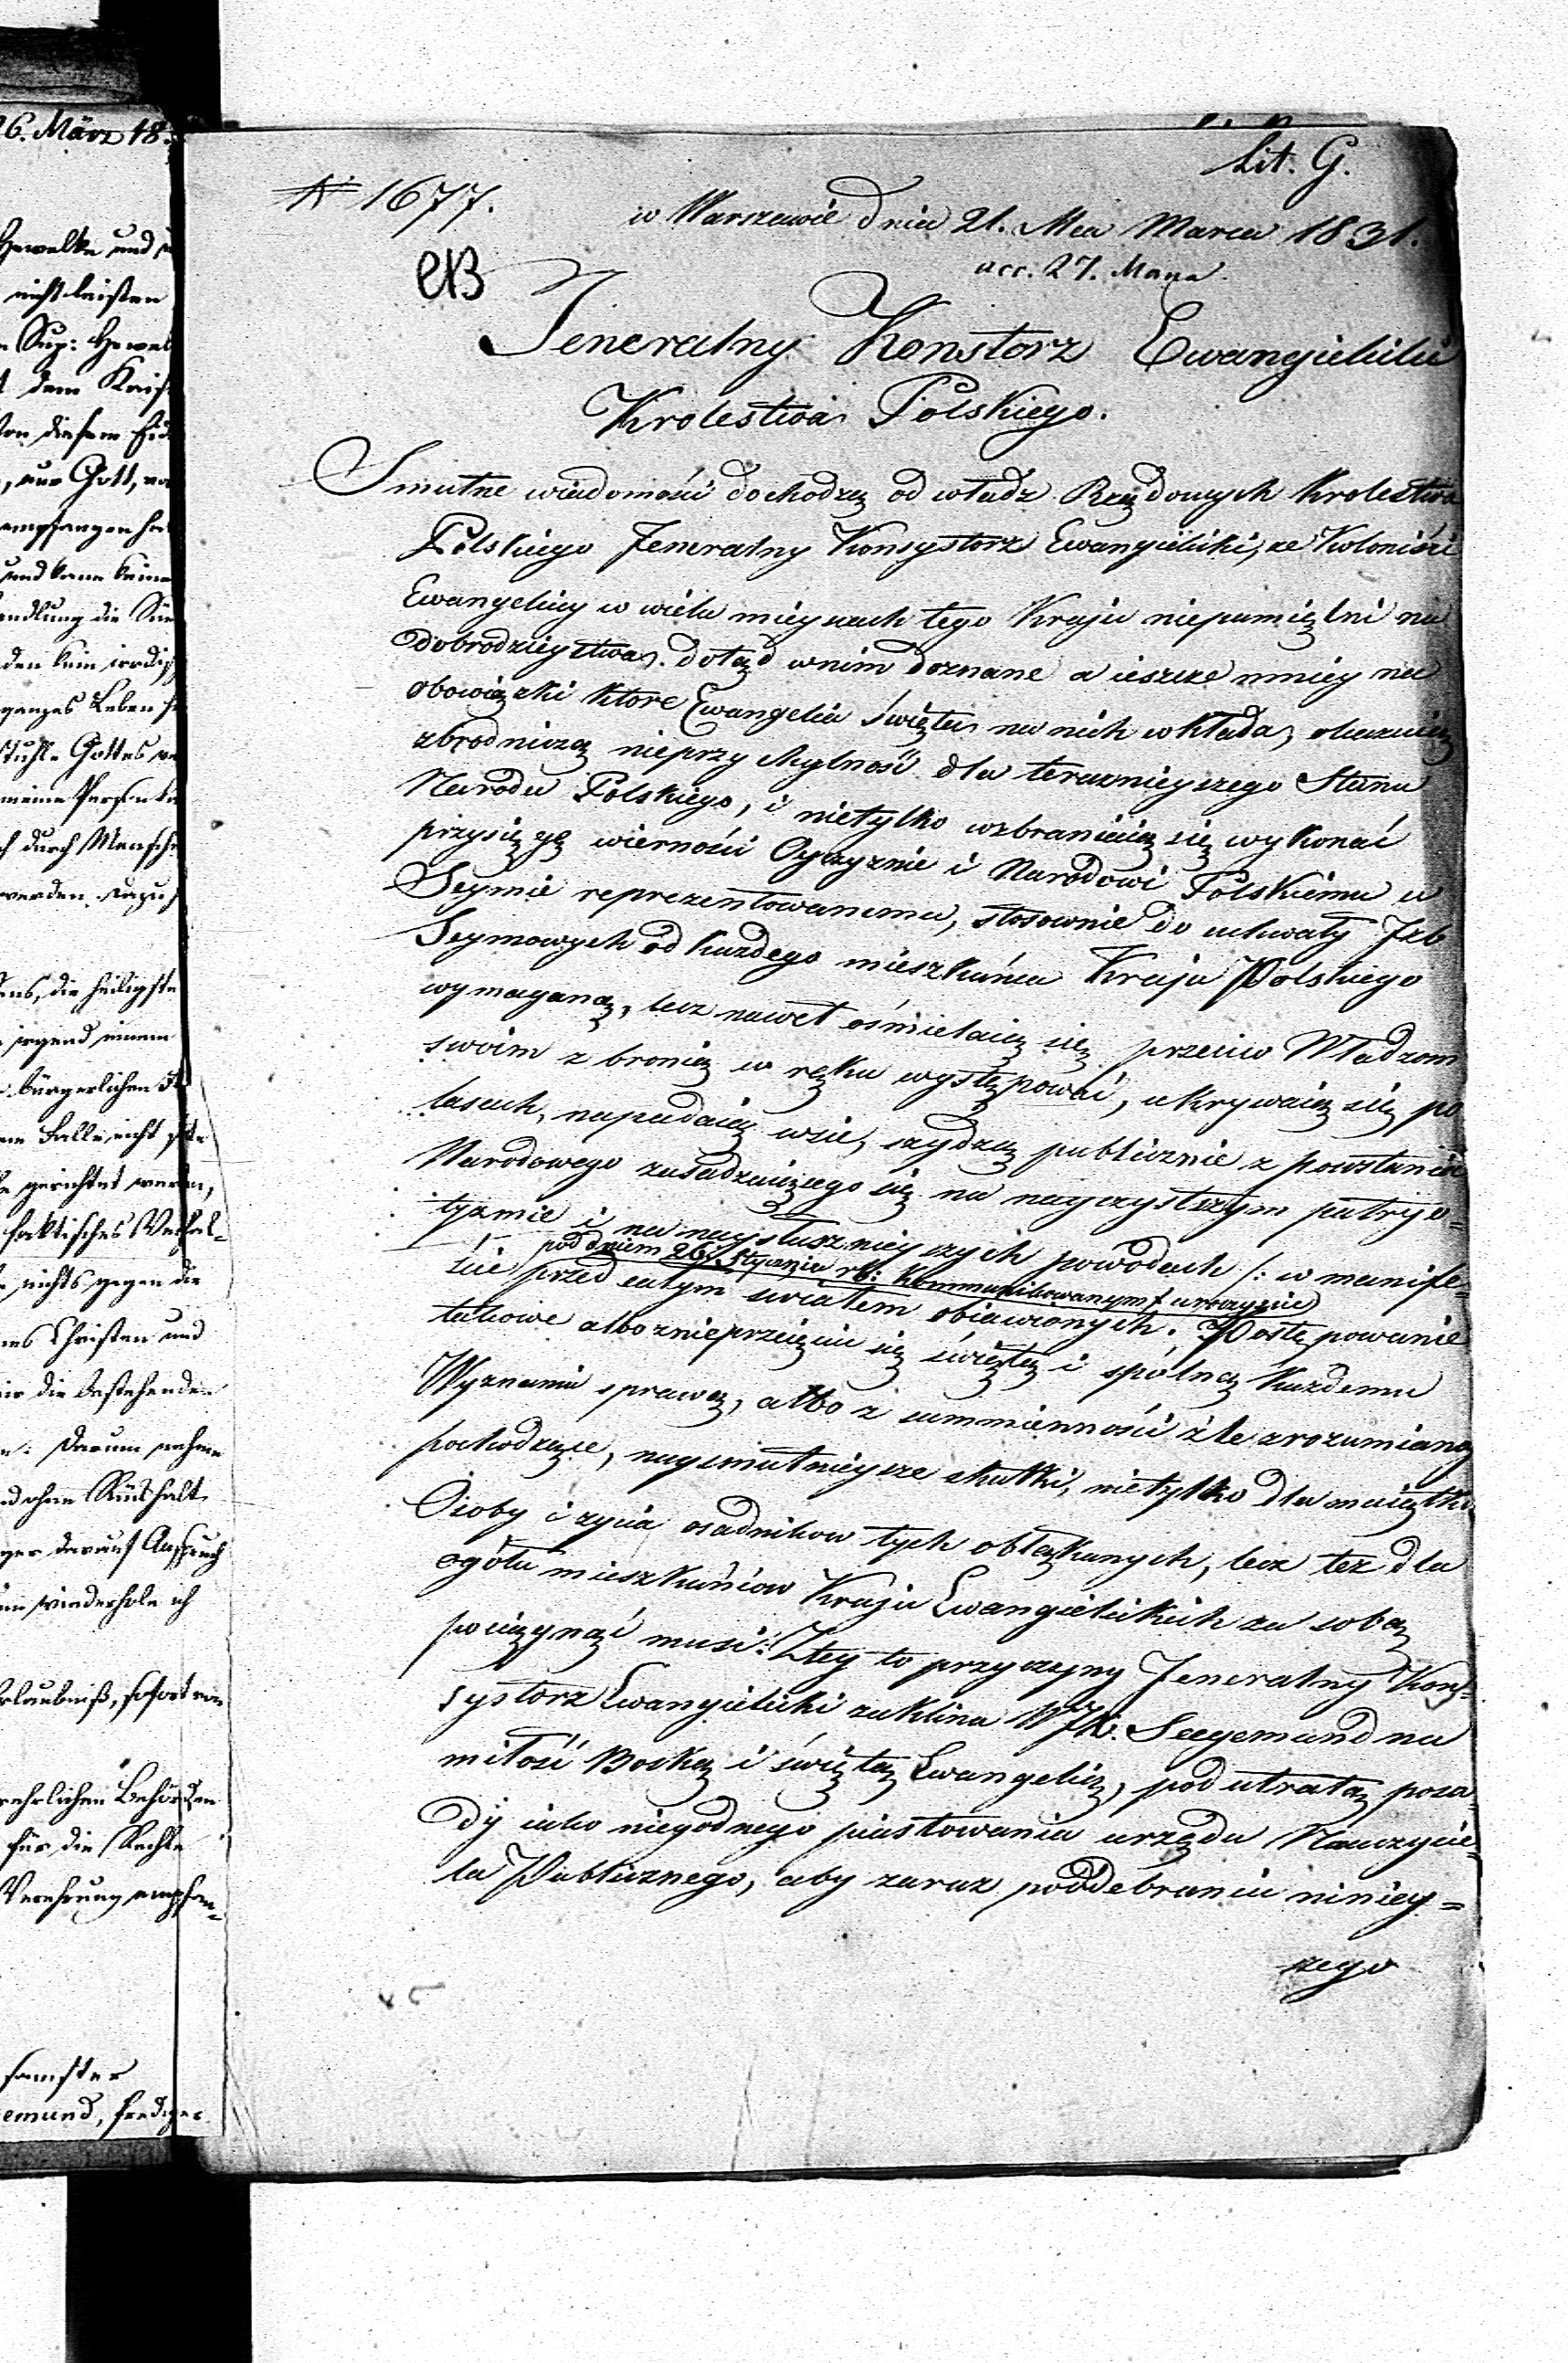 26. März 18
Hewelke und
nicht leisten
Sup: Hewel
dem Kais
von diesem Eid
nur Gott,
empfangen
und kann keine
Handlung die
den kein irdisch
ganzes Leben
stuhle Gottes
meine Person
durch Mensche
werden.
die heiligste
irgend einem
bürgerlichen
Falle nicht
gerichtet werden,
faktisches Verhal-
nichts gegen die
Christen und
die bestehenden
Darum nehme
ohne Rückhalt
darauf Anspruch
wiederhole ich
Erlaubniß, sofort
Behörden
für die Rechte
Verehrung empfan-
samster
emund, Prediger
Lit. G.
№ 1677.
w Warszawie dnia 21. Mca Marca 1831.
acc. 27. Marca
Jeneralny Konstorz Ewangielicki
Krolestwa Polskiego.
Smutne wiadomości dochodzą od władz Rządowych Krolestwa
Polskiego Jeneralny Konsystorz Ewangielicki, że Koloniści
Ewangelicy w wielu mieyscach tego Kraju niepamiętni na
dobrodzieystwa dotąd w nim doznane a ieszcze mniey na
obowiązki ktore Ewangelia święta na nich wkłada, okazuią
zbrodniczą nieprzychylność dla teraznieyszego Stanu
Narodu Polskiego, i nietylko wzbraniaią się wykonać
przysięgę wierności Oyczyznie i Narodowi Polskiemu w
Seymie reprezentowanemu, stosownie do uchwały Izb
Seymowych od każdego mieszkańca Kraju Polskiego
wymaganą, lecz nawet ośmielaią się przeciw Władzom
swoim z bronią w ręku występować, ukrywaią się po
lasach, napadaią wsie, szydzą publicznie z powstania
Narodowego zasadzaiącego się na nayczystszym patryo-
tyzmie i na naysłusznieyszych powodach /: w manife-
pod dniem 26. Stycznia rb: kommunikowanym uroczyscie
ście przed całym światem obiawionych. Postępowanie
takowe albo z nieprzeięcia się świętą i spólną każdemu
Wyznaniu sprawą, albo z summienności źle zrozumianey
pochodzące, naysmutnieysze skutki, nietylko dla maiątku
Osoby i życia osadnikow tych obłąkanych, lecz też dla
ogółu mieszkańcow Kraju Ewangielickich za sobą
pociągnąć musi. Ztey to przyczyny Jeneralny Kon-
systorz Ewangielicki zaklina WJX. Seegemund na
miłość Boską i świętą Ewangelią, pod utratą posa-
dy iako niegodnego piastowania urzędu Nauczycie-
la Publicznego, aby zaraz po odebraniu niniey-
szego